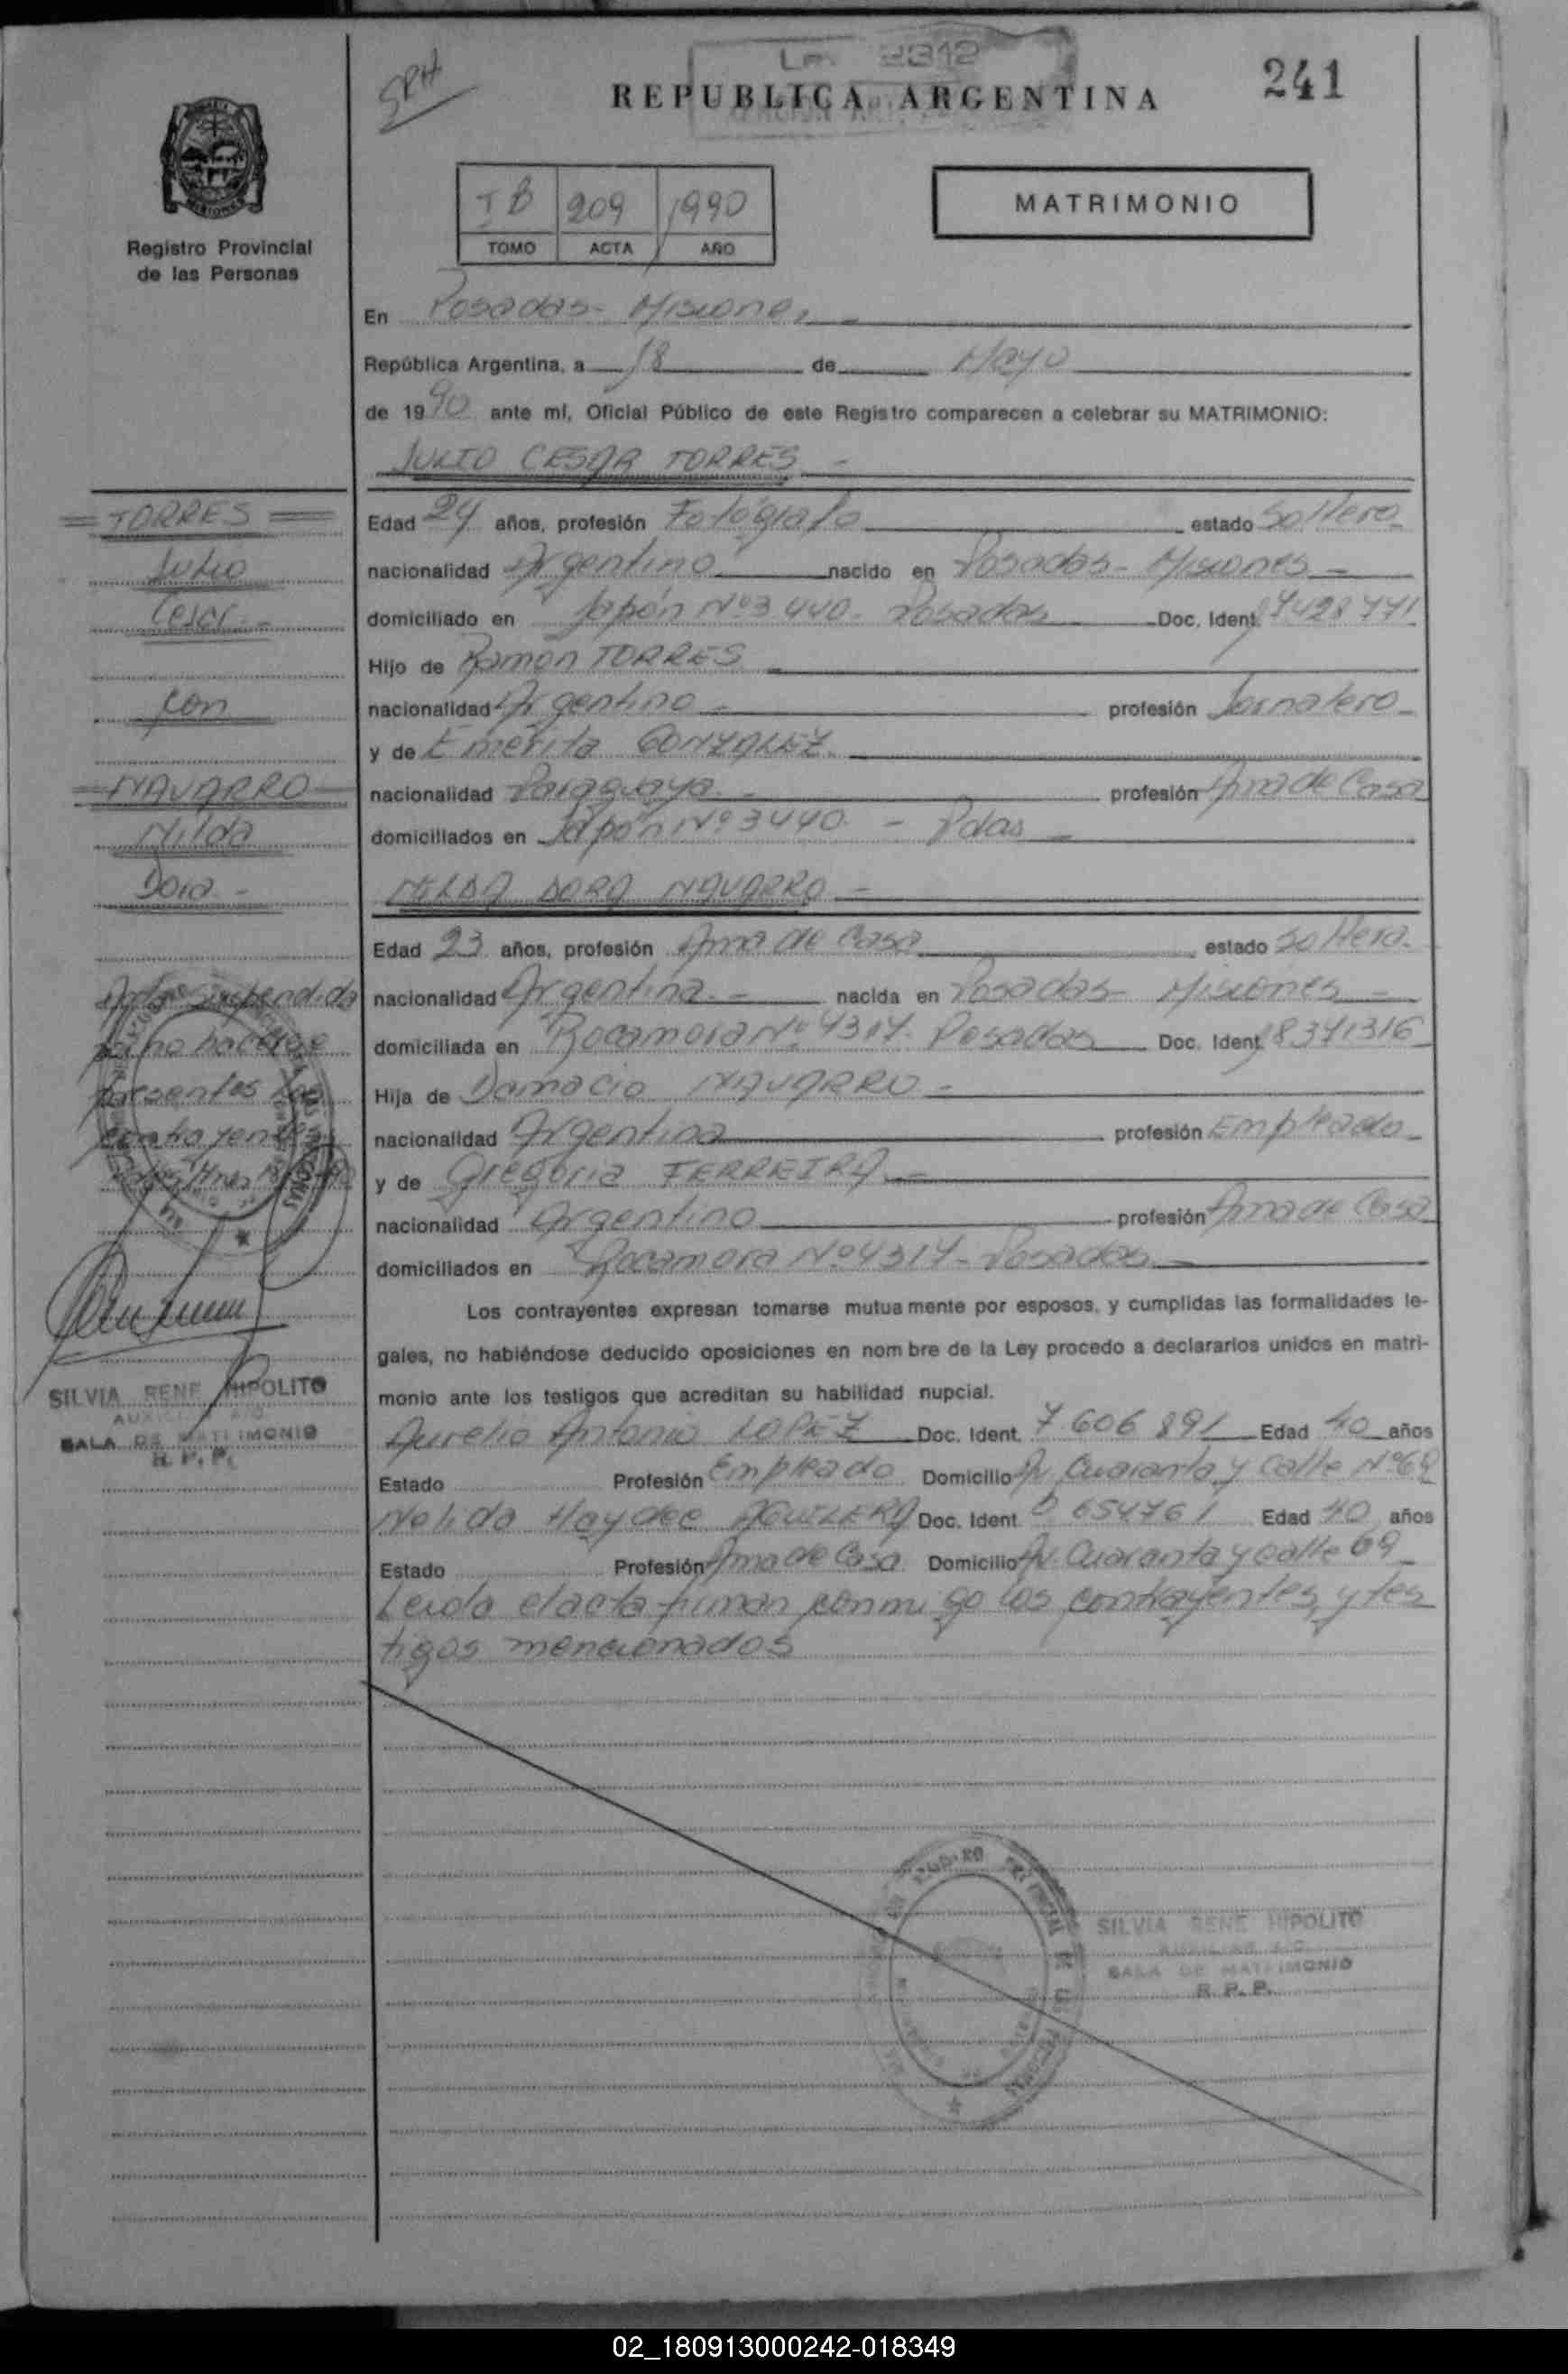 SRH
Ley 2312
REPUBLICA ARGENTINA
241
MISIONES
Registro Provincial
de las Personas
I B 209 1990
TOMO ACTA AÑO
MATRIMONIO
En Posadas- Misiones -
República Argentina, a 18 de Mayo
de 1990 ante mí, Oficial Público de este Registro comparecen a celebrar su MATRIMONIO:
JULIO CESAR TORRES -
= TORRES =
Julio
Cesar -
con
= NAVARRO
Nilda
Dora -
Edad 24 años, profesión Fotógrafo estado Soltero-
nacionalidad Argentino nacido en Posadas- Misiones -
domiciliado en Japón Nº3440- Posadas Doc. Ident. 17428771
Hijo de Ramon TORRES -
nacionalidad Argentino - profesión Jornalero -
y de Emerita GONZALEZ.
nacionalidad Paraguaya. - profesión Ama de Casa
domiciliados en Japón Nº3440. - Pdas -
NILDA DORA NAVARRO -
Edad 23 años, profesión Ama de Casa estado Soltera.
nacionalidad Argentina. - nacida en Posadas- Misiones -
domiciliada en Rocamora Nº 4317. Posadas Doc. Ident. 18371316
Hija de Damacio NAVARRO -
nacionalidad Argentina profesión Empleado -
y de Gregoria FERREIRA. -
nacionalidad Argentino profesión Ama de Casa
domiciliados en Rocamora Nº4317- Posadas -
Acta Suspendida
por no hacerse
presentes los
contrayentes
SILVIA RENE HIPOLITO
AUXILIAR A/C.
SALA DE MATRIMONIO
R. P. P.
Los contrayentes expresan tomarse mutuamente por esposos, y cumplidas las formalidades le-
gales, no habiéndose deducido oposiciones en nombre de la Ley procedo a declararlos unidos en matri-
monio ante los testigos que acreditan su habilidad nupcial.
Aurelio Antonio LOPEZ Doc. Ident. 7 606 891 Edad 40 años
Estado Profesión Empleado Domicilio Av. Cuaranta y Calle Nº69
Nelida Haydee AGUILERA Doc. Ident 6 654761 Edad 40 años
Estado Profesión Ama de Casa Domicilio Av. Cuaranta y calle 69
Leida el acta firman conmigo los contrayentes, y tes
tigos mencionados
SILVIA RENE HIPOLITO
AUXILIAR A/C.
SALA DE MATRIMONIO
R. P. P.
02_180913000242-018349